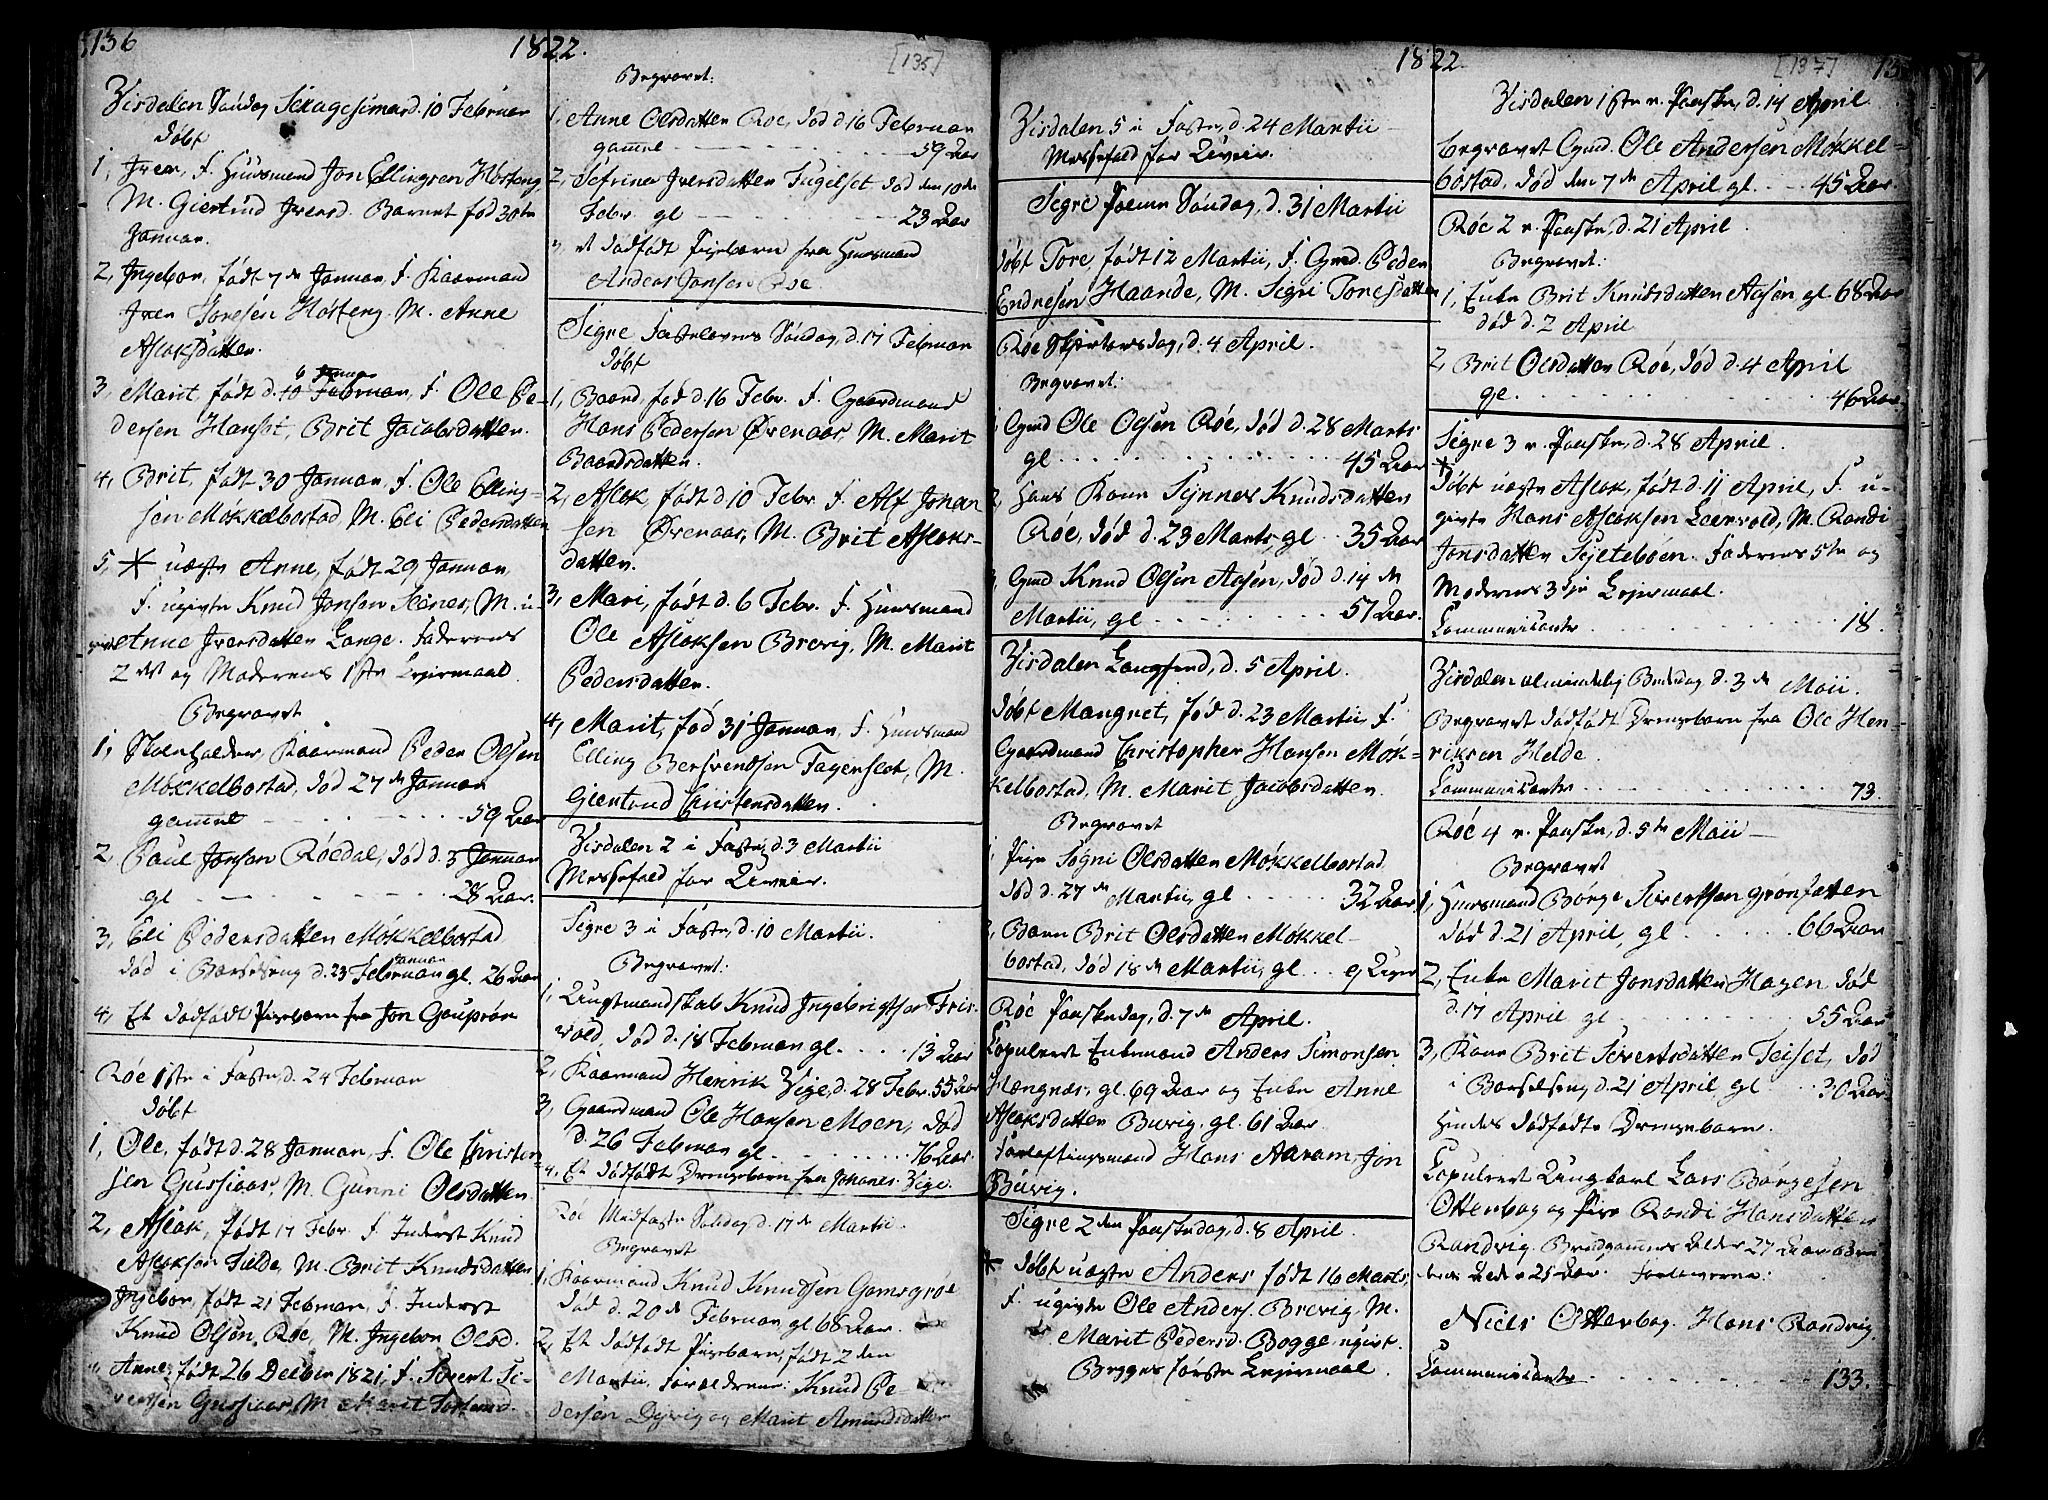 136
1822.
[135]
Visdalen Søndag Sexagesima d. 10 Februar
døbt
1, Iver, F. Huusmand Jon Ellingsen Høsteng
M. Giertrud Iversd. Barnet fød 30te
Januar.
2, Ingebor, født 7de Januar, F. Kaarmand
Iver Toresen Høsteng. M. Anne
Aslaksdatten.
3, Marit født d. 6 Januar, F. Ole Pe-
dersen Hanset, Brit Jacobsdatten.
4, Brit, født 30 Januar, F. Ole Elling-
sen Møkkelbostad M. Eli Pedersdatten
5, * uægte Anne, født 29 Januar,
F. ugivte Knud Jonsen M. u-
Anne Iversdatten Lange. Faderens
2det og Moderens 1ste Leiermaal
Begravet
1, Skoleholder, Kaarmand Peder Olsen
Møkkelbostad, død 27de Januar
gamel 59 Aar
2, Paul Jonsen Røedal, død d. 3 Januar
gl 28 Aar.
3, Eli Pedersdatten Møkkelbostad
død i Barselseng d. 23 Januar gl. 26 Aar
4, Et dødfødt Pigebarn fra Jon Gouprøn
Røe 1ste i Faste, d. 24 Februar
døbt
1, Ole, født d. 28 Januar, F. Ole Christen
sen Gussiaas, M. Gunni Olsdatten.
2, Aslak, født 17 Febr. F. Inderst Knud
Aslaksen Fielde, M. Brit Knudsdatten
Ingebor, født 21 Februar, F. Inderst
Knud Olsen Røe, M. Ingebor Olsd.
Anne, født 26 Decbr 1821, F. Sivert Si-
vertsen Gussiaas, M. Marit
Begravet:
1, Anne Olsdatten Roe, død d. 16 Februar
gamel 59 Aar
2, Sefrina Iversdatten Fugelset død den 10de
Febr. gl 23 Aar
3, et dødfødt Pigebarn fra Huusmand
Anders Jonsen Roe
Sigre Fastelavns Søndag, d. 17 Februar
døbt
1, Baard, fød 16 Febr. F. Gaardmand
Hans Pedersen Ørenaas, M. Marit
Baardsdatten.
2, Aslak født d. 10 Febr. F. Alf Johan
sen Ørenaas, M. Brit Aslaks-
datten.
3, Mari, født d. 6 Febr. F. Huusmand
Ole Aslaksen Brevig, M. Marit
Pedersdatten.
4, Marit, fød 31 Januar, F. Huusmand
Elling Bersvendsen Fagerslet, M.
Giertrud Christensdatten.
Visdalen 2 i Faste, d. 3 Martii
Messefald for Uveir.
Sigre 3 i Faste, d. 10 Martii.
Begravet:
1, Ungtmandskab Knud Ingebrigtsen Fris-
vold, død d. 18 Februar gl. 13 Aar
2, Kaarmand Henrik Vige, d. 28 Febr. 55 Aar
3, Gaardmand Ole Hansen Moen, død
d. 26 Februar gl. 76 Aar.
4, Et dødfødt Drengebarn fra Johanes Vige.
Røe Midfaste Søndag, d. 17de Martii.
Begravet
1, Kaarmand Knud Knudsen Gamsgrøe
død d. 20de Februar, gl. 68 Aar.
2, Et dødfødt Pigebarn, født 2den
Martii, Forældrene: Knud Pe-
dersen og Marit Amundsdatten
1822.
[137]
Visdalen 5 i Faste, d. 24 Martii
Messefald for Uveir.
Sigre Palme Søndag, d. 31 Martii
døbt Tore, født 12 Martii, F. Gmd. Peder
Endresen Haande, M. Sigri Toresdatten
Røe Skjertorsdag, d. 4 April.
Begravet:
1, Gmd Ole Olsen Røe, død d. 28 Marts
gl 45 Aar
2, Hans Kone Synnes Knudsdatten
Røe, død d. 23 Marts, gl. 35 Aar
3, Gmd Knud Olsen Aasen, død d. 14de
Martii, gl 57 Aar.
Visdalen Langfred, d. 5 April.
døbt Mangret, fød d. 23 Martii, F.
Gaardmand Christopher Hansen Møk-
kelbostad, M. Marit Jacobsdatten.
Begravet
1, Pige Sogni Olsdatten Møkkelbostad
død d. 27de Martii, gl 32 Aar
2, Barn Brit Olsdatten Møkkel-
bostad, død 18de Martii, gl. 9 Uger
Røe Paaskedag, d. 7de April.
Copuleret Enkemand Anders Simonsen
Hængnæs, gl. 69 Aar og Enke Anne
Aslaksdatten Buvig, gl. 61 Aar.
Forløftingsmænd Hans Aaram, Jon
Buvig.
Sigre 2den Paaskedag, d. 8 April.
* døbt uægte Anders født 16 Marts,
F. ugivte Ole Anders. Brevig, M.
Marit Pedersd. Bogge, ugivt.
Begges første Leiermaal.
Visdalen 1ste e. Paaske, d. 14 April
begravet Gmd. Ole Andersen Møkkel-
bostad, død den 7de April gl. 45 Aar.
Røe 2 e. Paaske, d. 21 April.
Begravet:
1, Enke Brit Knudsdatten Aasen gl. 68 Aar
død d. 2 April
2, Brit Olsdatten Røe, død d. 4 April
gl. 46 Aar.
Sigre 3 e. Paaske, d. 28 April.
*
døbt uægte Aslak, født d. 11 April, F. u-
givte Hans Aslaksen Leervold, M. Randi
Jonsdatten Syltebøen. Faderens 5te og
Moderens 3die Leiermaal.
Communicanter 18.
Visdalen almindelig Bededag, d. 3de Maii.
Begravet dødfødt Drengebarn fra Ole Hen
riksen Helde.
Communicanter 73.
Røe 4 e. Paaske, d. 5te Maii
Begravet
1, Huusmand Børge Sivertsen Grønsetten
død d. 21 April, gl 66 Aar
2, Enke Marit Jonsdatten Hagen død
d. 17 April gl 55 Aar
3, Kone Brit Sivertsdatten Teiset, død
i Barselseng d. 21 April, gl 30 Aar.
Hendes dødfødte Drengebarn.
Copuleret Ungkarl Lars Børgesen
Otterbog og Pige Randi Hansdatten
Randvig. Brudgommens Alder 27 Aar, Bru
dens Alder 25 Aar. Forloverne:
Niels Otterbog. Hans Randvig.
Communicanter 133.